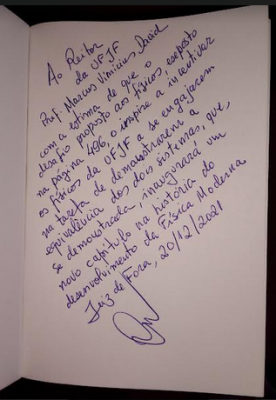 Ao Reitor
da UFJF
Prof. Marcus Vinicius David
com a estima de que o
desafio proposto aos físicos, exposto
na página 496, o inspire a incentivar
os físicos da UFJF a se engajarem
na tarefa de demonstrarem a
equivalência dos dois sistemas, que,
se demonstrada, inaugurará um
novo capítulo na história do
desenvolvimento da Física Moderna.
Juiz de Fora, 20/12/2021